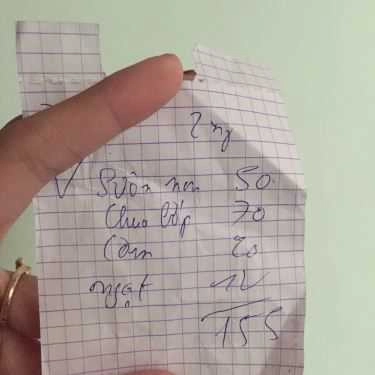 2 ng
Sườn non 50
Chua bắp 70
Cơm 20
ngọt
155